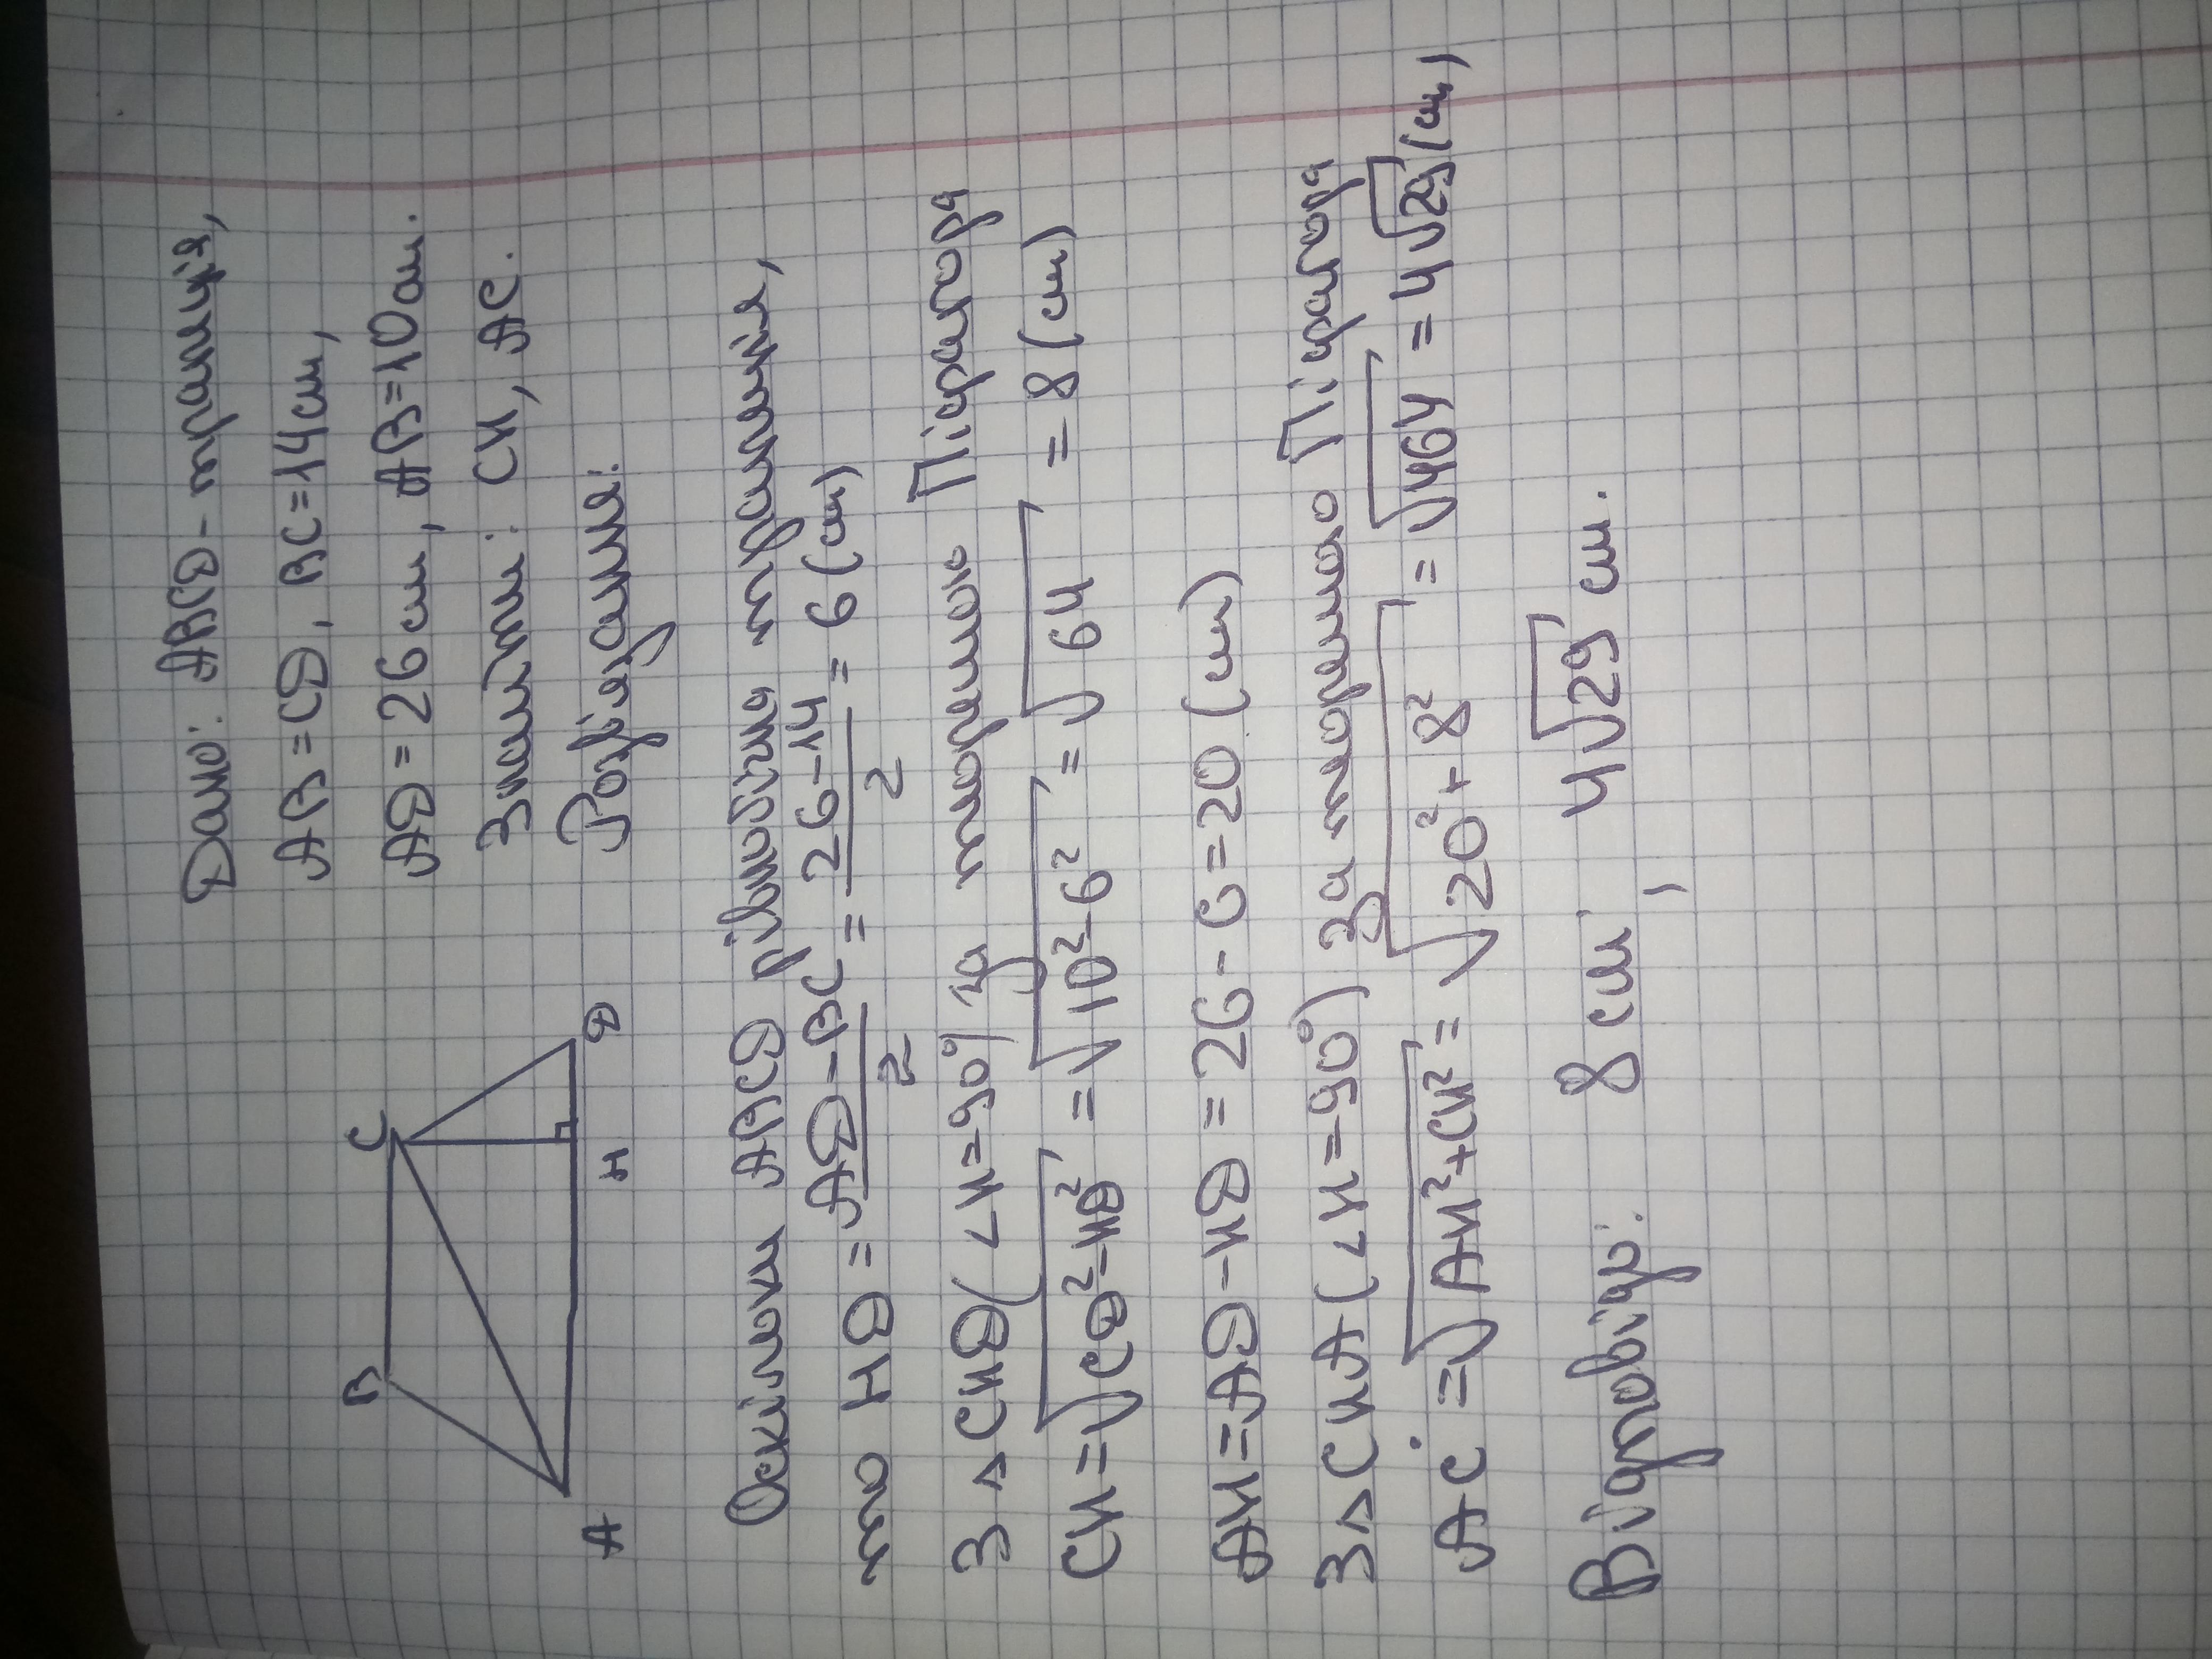 Дано: ABCD - трапеція,
AB = CD, BC = 14 см,
AD = 26 см, AB = 10 см.
Знайти: CH, AC.
Розв'язання:
B
C
A
H
D
Оскільки ABCD рівнобічна трапеція,
то HD = \frac{AD - BC}{2} = \frac{26 - 14}{2} = 6 (см)
З △CHD (∠H = 90°) за теоремою Піфагора
CH = √(CD² - HD²) = √(10² - 6²) = √64 = 8 (см)
AH = AD - HD = 26 - 6 = 20 (см)
З △CHA (∠H = 90°) За теоремою Піфагора
AC = √(AH² + CH²) = √(20² + 8²) = √464 = 4√29 (см)
Відповідь: 8 см, 4√29 см.